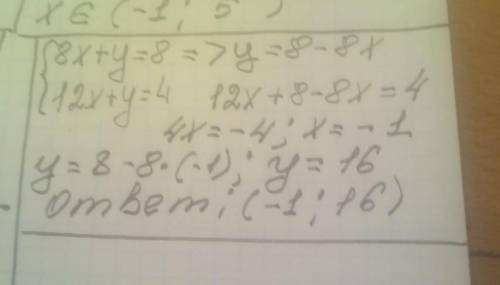 x ∈ (-1; 5)
{8x+y=8 => y=8-8x
{12x+y=4 12x+8-8x=4
4x=-4; x=-1
y=8-8·(-1); y=16
ответ: (-1; 16)